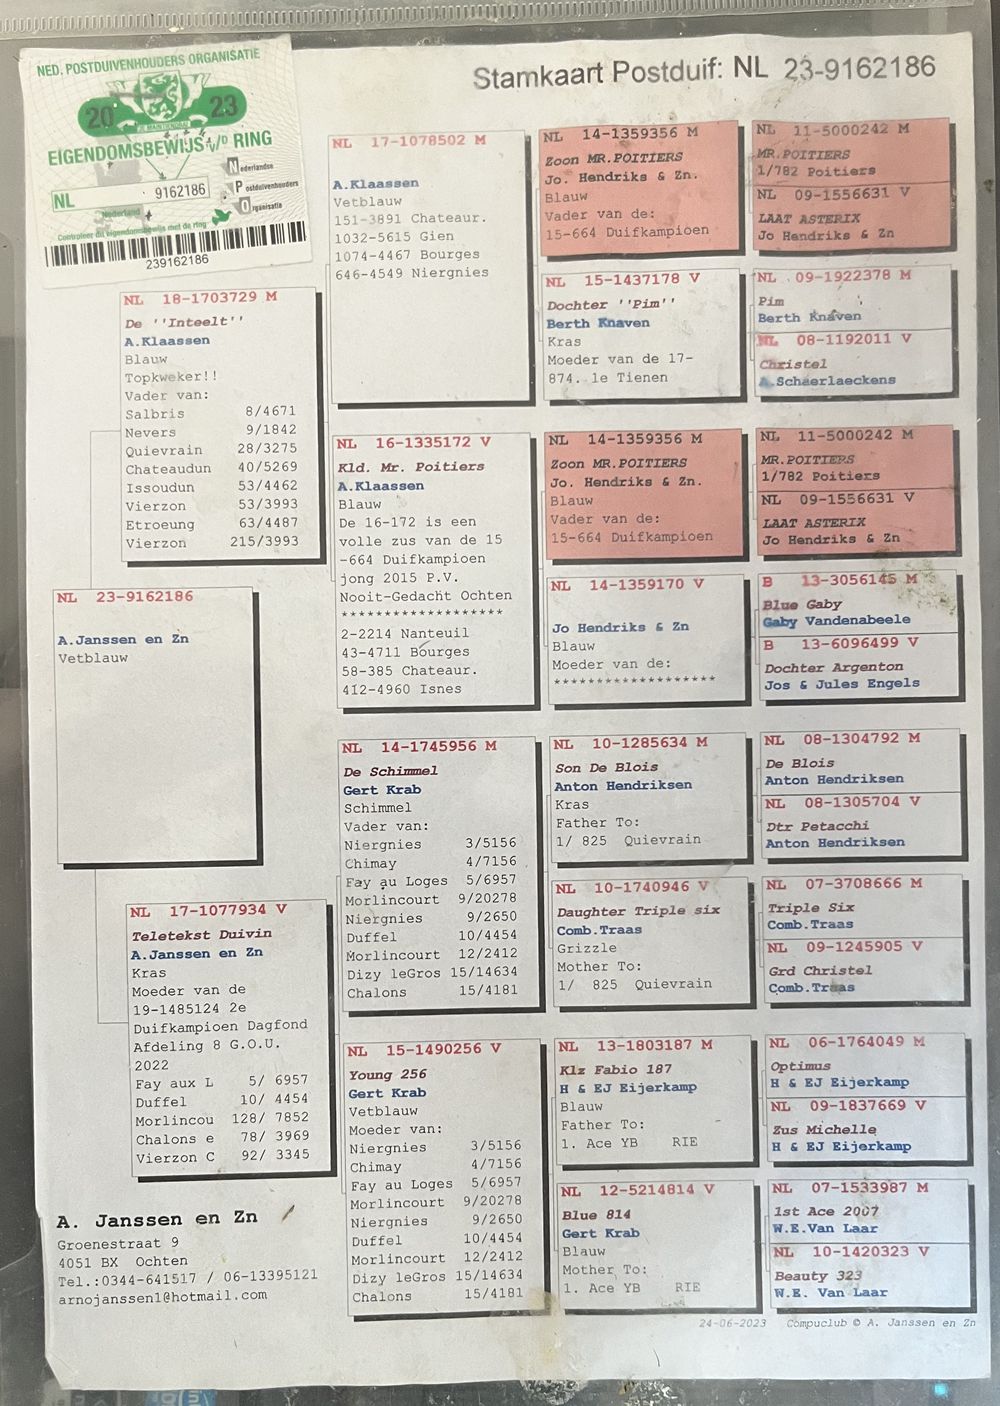 NED. POSTDUIVENHOUDERS ORGANISATIE
20 23
JE MAINTIENDRAI
EIGENDOMSBEWIJS V/D RING
NL 9162186
Nederland
Nederlandse
Postduivenhouders
Organisatie
Controleer dit eigendomsbewijs met de ring
239162186
Stamkaart Postduif: NL 23-9162186
NL 18-1703729 M
De ''Inteelt''
A.Klaassen
Blauw
Topkweker!!
Vader van:
Salbris 8/4671
Nevers 9/1842
Quievrain 28/3275
Chateaudun 40/5269
Issoudun 53/4462
Vierzon 53/3993
Etroeung 63/4487
Vierzon 215/3993
NL 23-9162186
A.Janssen en Zn
Vetblauw
NL 17-1077934 V
Teletekst Duivin
A.Janssen en Zn
Kras
Moeder van de
19-1485124 2e
Duifkampioen Dagfond
Afdeling 8 G.O.U.
2022
Fay aux L 5/ 6957
Duffel 10/ 4454
Morlincou 128/ 7852
Chalons e 78/ 3969
Vierzon C 92/ 3345
A. Janssen en Zn
Groenestraat 9
4051 BX Ochten
Tel.:0344-641517 / 06-13395121
arnojanssen1@hotmail.com
NL 17-1078502 M
A.Klaassen
Vetblauw
151-3891 Chateaur.
1032-5615 Gien
1074-4467 Bourges
646-4549 Niergnies
NL 16-1335172 V
Kld. Mr. Poitiers
A.Klaassen
Blauw
De 16-172 is een
volle zus van de 15
-664 Duifkampioen
jong 2015 P.V.
Nooit-Gedacht Ochten
*******************
2-2214 Nanteuil
43-4711 Bourges
58-385 Chateaur.
412-4960 Isnes
NL 14-1745956 M
De Schimmel
Gert Krab
Schimmel
Vader van:
Niergnies 3/5156
Chimay 4/7156
Fay au Loges 5/6957
Morlincourt 9/20278
Niergnies 9/2650
Duffel 10/4454
Morlincourt 12/2412
Dizy leGros 15/14634
Chalons 15/4181
NL 15-1490256 V
Young 256
Gert Krab
Vetblauw
Moeder van:
Niergnies 3/5156
Chimay 4/7156
Fay au Loges 5/6957
Morlincourt 9/20278
Niergnies 9/2650
Duffel 10/4454
Morlincourt 12/2412
Dizy leGros 15/14634
Chalons 15/4181
NL 14-1359356 M
Zoon MR.POITIERS
Jo. Hendriks & Zn.
Blauw
Vader van de:
15-664 Duifkampioen
NL 15-1437178 V
Dochter ''Pim''
Berth Knaven
Kras
Moeder van de 17-
874. 1e Tienen
NL 14-1359356 M
Zoon MR.POITIERS
Jo. Hendriks & Zn.
Blauw
Vader van de:
15-664 Duifkampioen
NL 14-1359170 V
Jo Hendriks & Zn
Blauw
Moeder van de:
*******************
NL 10-1285634 M
Son De Blois
Anton Hendriksen
Kras
Father To:
1/ 825 Quievrain
NL 10-1740946 V
Daughter Triple six
Comb.Traas
Grizzle
Mother To:
1/ 825 Quievrain
NL 13-1803187 M
Klz Fabio 187
H & EJ Eijerkamp
Blauw
Father To:
1. Ace YB RIE
NL 12-5214814 V
Blue 814
Gert Krab
Blauw
Mother To:
1. Ace YB RIE
NL 11-5000242 M
MR.POITIERS
1/782 Poitiers
NL 09-1556631 V
LAAT ASTERIX
Jo Hendriks & Zn
NL 09-1922378 M
Pim
Berth Knaven
NL 08-1192011 V
Christel
A.Schaerlaeckens
NL 11-5000242 M
MR.POITIERS
1/782 Poitiers
NL 09-1556631 V
LAAT ASTERIX
Jo Hendriks & Zn
B 13-3056145 M
Blue Gaby
Gaby Vandenabeele
B 13-6096499 V
Dochter Argenton
Jos & Jules Engels
NL 08-1304792 M
De Blois
Anton Hendriksen
NL 08-1305704 V
Dtr Petacchi
Anton Hendriksen
NL 07-3708666 M
Triple Six
Comb.Traas
NL 09-1245905 V
Grd Christel
Comb.Traas
NL 06-1764049 M
Optimus
H & EJ Eijerkamp
NL 09-1837669 V
Zus Michelle
H & EJ Eijerkamp
NL 07-1533987 M
1st Ace 2007
W.E.Van Laar
NL 10-1420323 V
Beauty 323
W.E. Van Laar
24-06-2023 Compuclub © A. Janssen en Zn